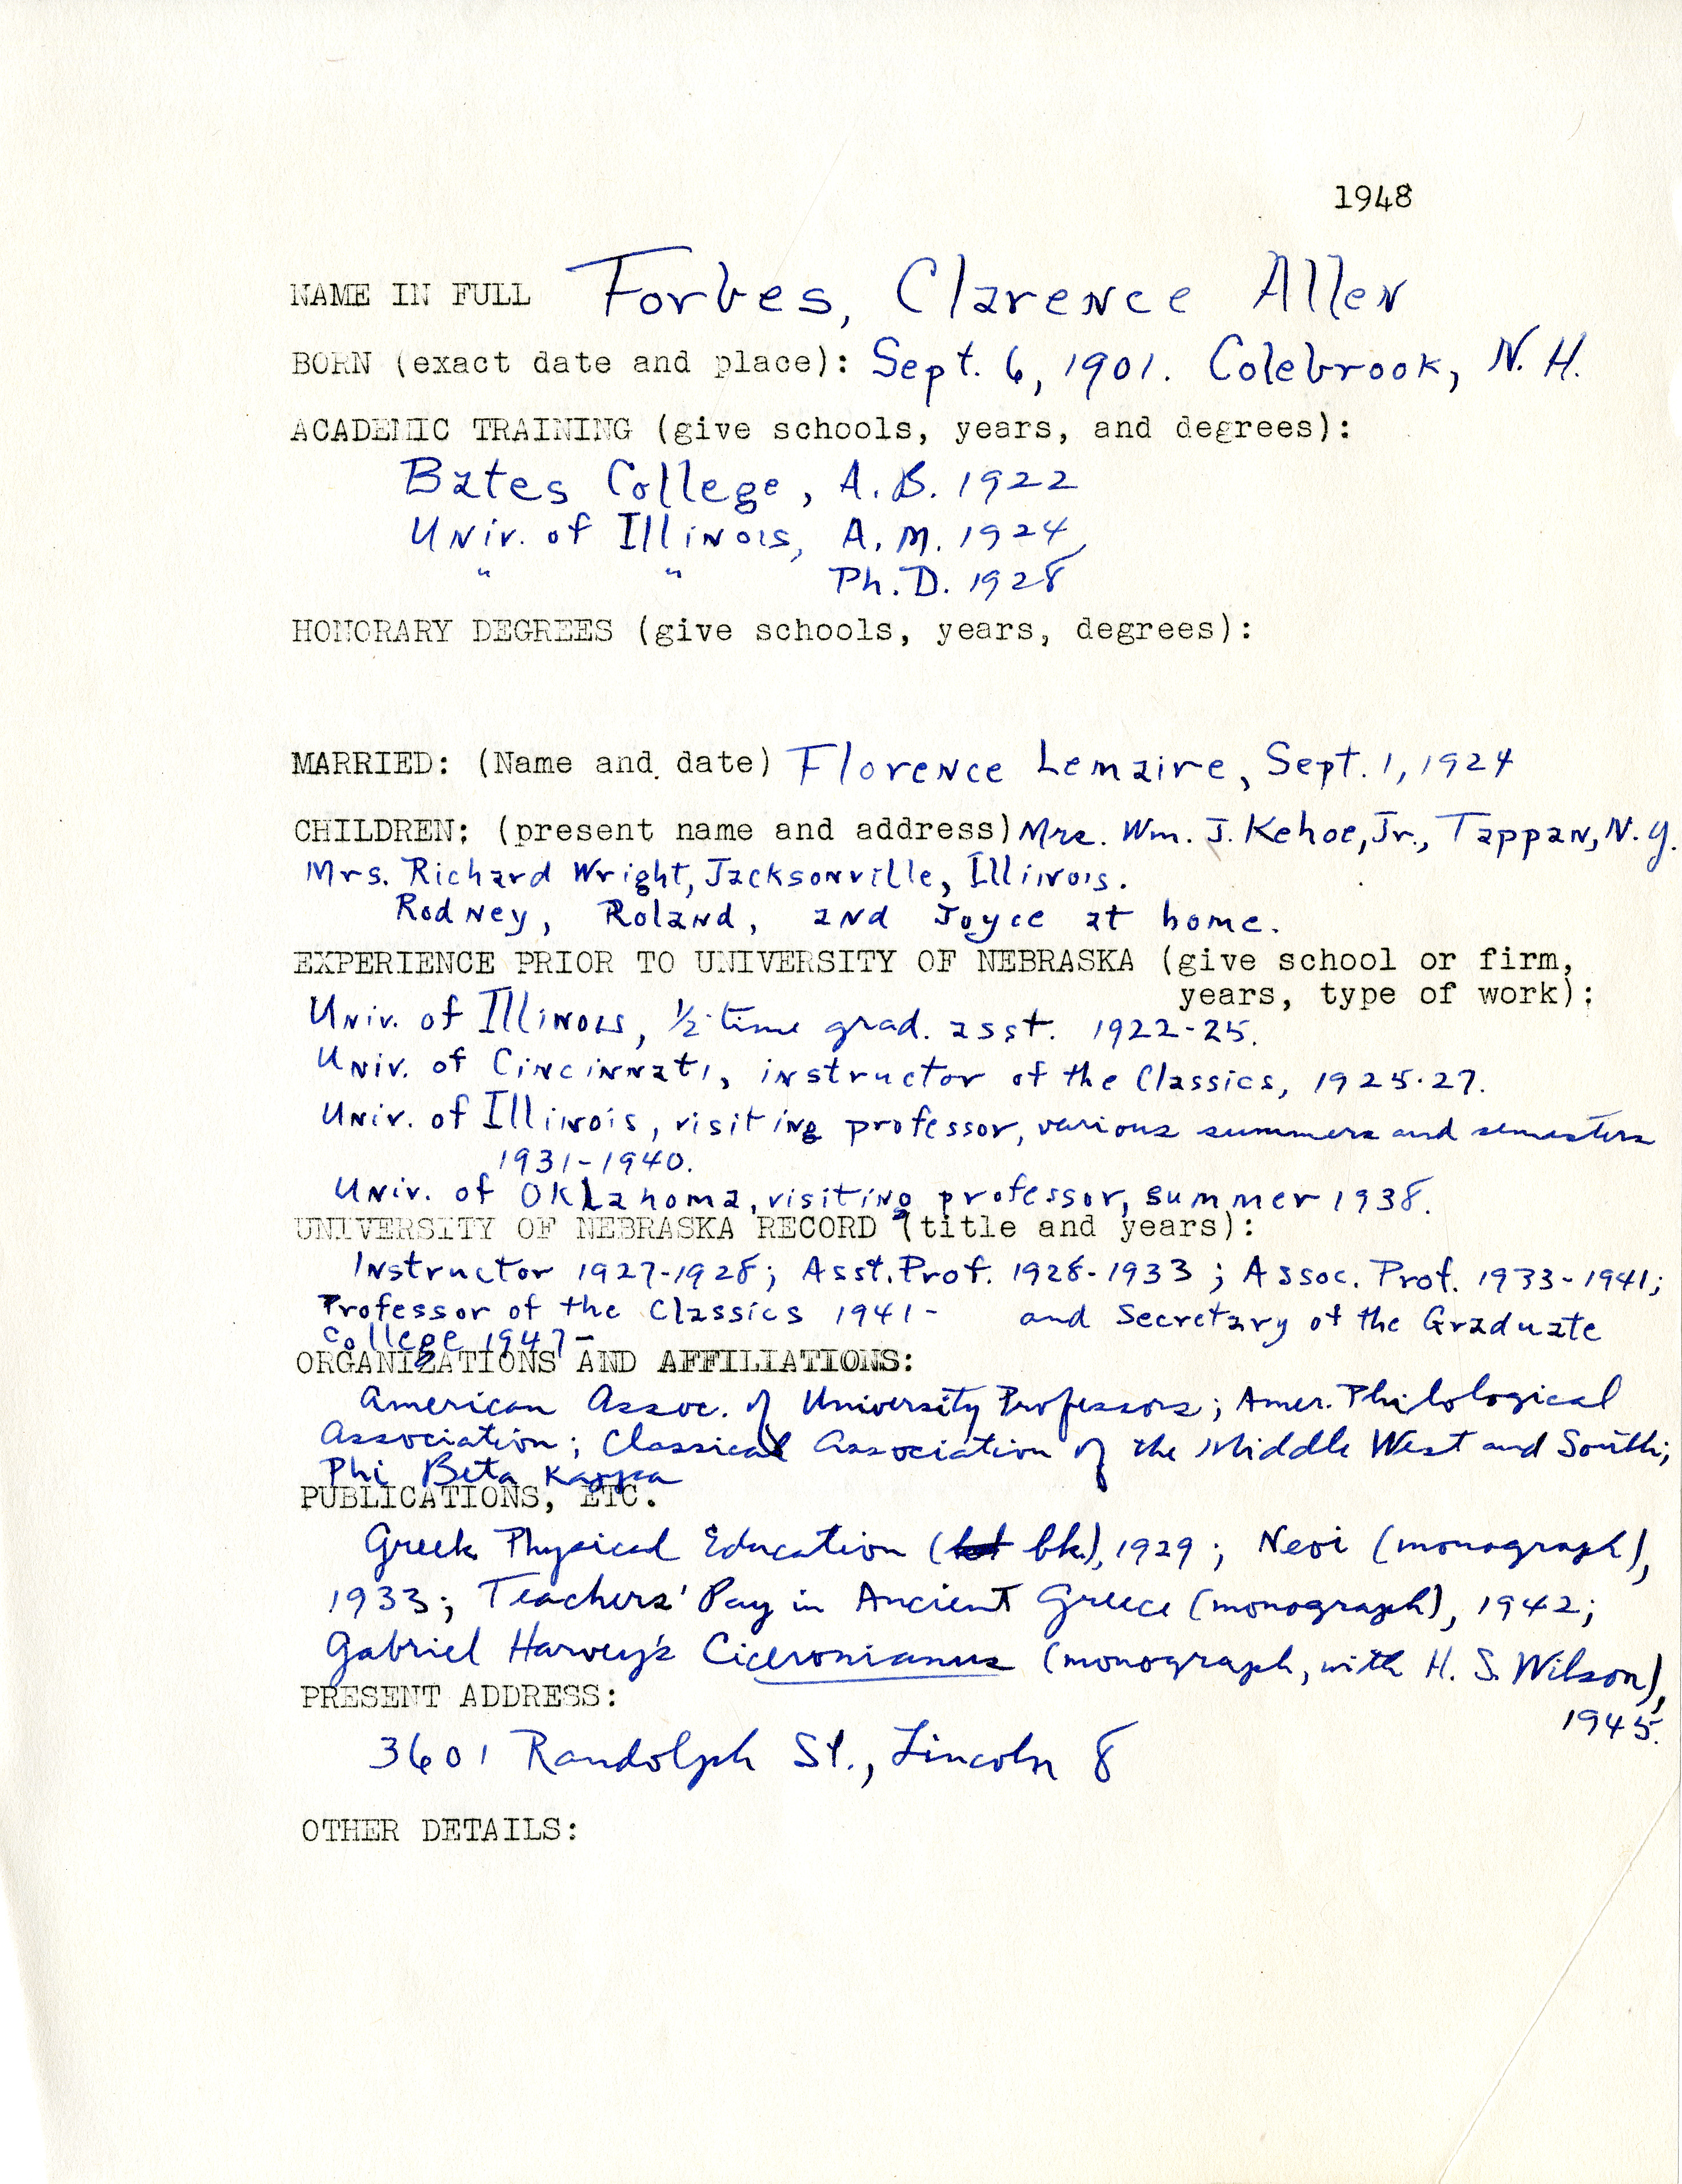 1948
NAME IN FULL Forbes, Clarence Allen
BORN (exact date and place): Sept. 6, 1901. Colebrook, N. H.
ACADEMIC TRAINING (give schools, years, and degrees):
Bates College, A.B. 1922
Univ. of Illinois, A.M. 1924,
" " Ph.D. 1928
HONORARY DEGREES (give schools, years, degrees):
MARRIED: (Name and date) Florence Lemaire, Sept. 1, 1924
CHILDREN: (present name and address) Mrs. Wm. J. Kehoe, Jr., Tappan, N.Y.
Mrs. Richard Wright, Jacksonville, Illinois.
Rodney, Roland, and Joyce at home.
EXPERIENCE PRIOR TO UNIVERSITY OF NEBRASKA (give school or firm,
years, type of work):
Univ. of Illinois, 1/2-time grad. asst. 1922-25.
Univ. of Cincinnati, instructor of the Classics, 1925-27.
Univ. of Illinois, visiting professor, various summers and semesters
1931-1940.
Univ. of Oklahoma, visiting professor, summer 1938.
UNIVERSITY OF NEBRASKA RECORD (title and years):
Instructor 1927-1928; Asst. Prof. 1928-1933; Assoc. Prof. 1933-1941;
Professor of the Classics 1941- and Secretary of the Graduate
College 1947-
ORGANIZATIONS AND AFFILIATIONS:
American Assoc. of University Professors; Amer. Philological
Association; Classical Association of the Middle West and South;
Phi Beta Kappa
PUBLICATIONS, ETC.
Greek Physical Education (bk.), 1929; Neoi (monograph),
1933; Teachers' Pay in Ancient Greece (monograph), 1942;
Gabriel Harvey's Ciceronianus (monograph, with H. S. Wilson),
1945.
PRESENT ADDRESS:
3601 Randolph St., Lincoln 8
OTHER DETAILS: